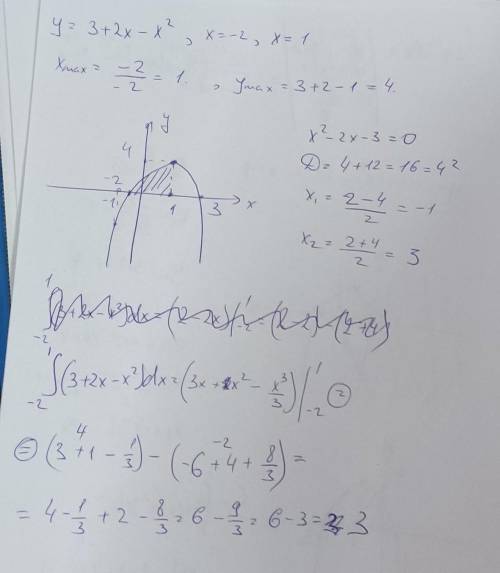 y = 3+2x-x², x=-2, x=1
x max = -2/-2 = 1. , y max = 3+2-1 = 4.
y
4
-2
-1
1
3
x
x²-2x-3=0
D = 4+12 = 16 = 4²
x₁ = (2-4)/2 = -1
x₂ = (2+4)/2 = 3
∫₋₂¹ (3+2x-x²)dx = (3x + x² - x³/3) |₋₂¹ =
= (3+1 - 1/3) - (-6+4+ 8/3) =
4
-2
= 4 - 1/3 + 2 - 8/3 = 6 - 9/3 = 6-3 = 3